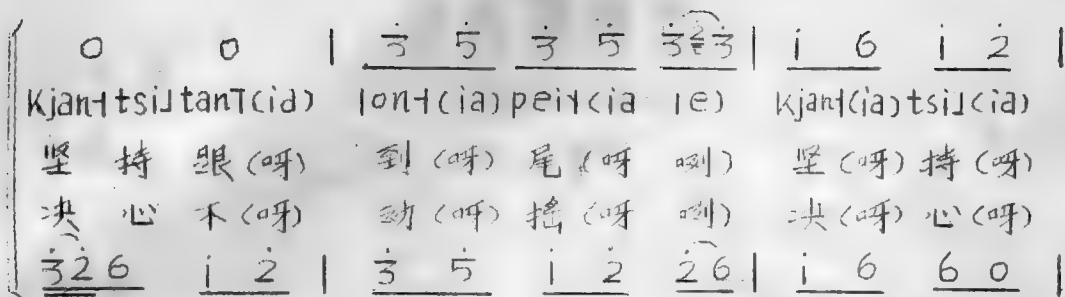 0 0 | 3̇ 5̇ 3̇ 5̇ 3̇2̇3̇ | i 6 i 2̇ |
kjan˧tsi˩tan˥(ia) lon˧(ia)pei˦(ia le) kjan˧(ia)tsi˩(ia)
坚 持 跟(呀) 到(呀)尾(呀 咧) 坚(呀)持(呀)
决 心 不(呀) 动(呀)摇(呀 咧) 决(呀)心(呀)
3̇2̇6 i 2̇ | 3̇ 5̇ i 2̇ 2̇6 | i 6 6 0 |